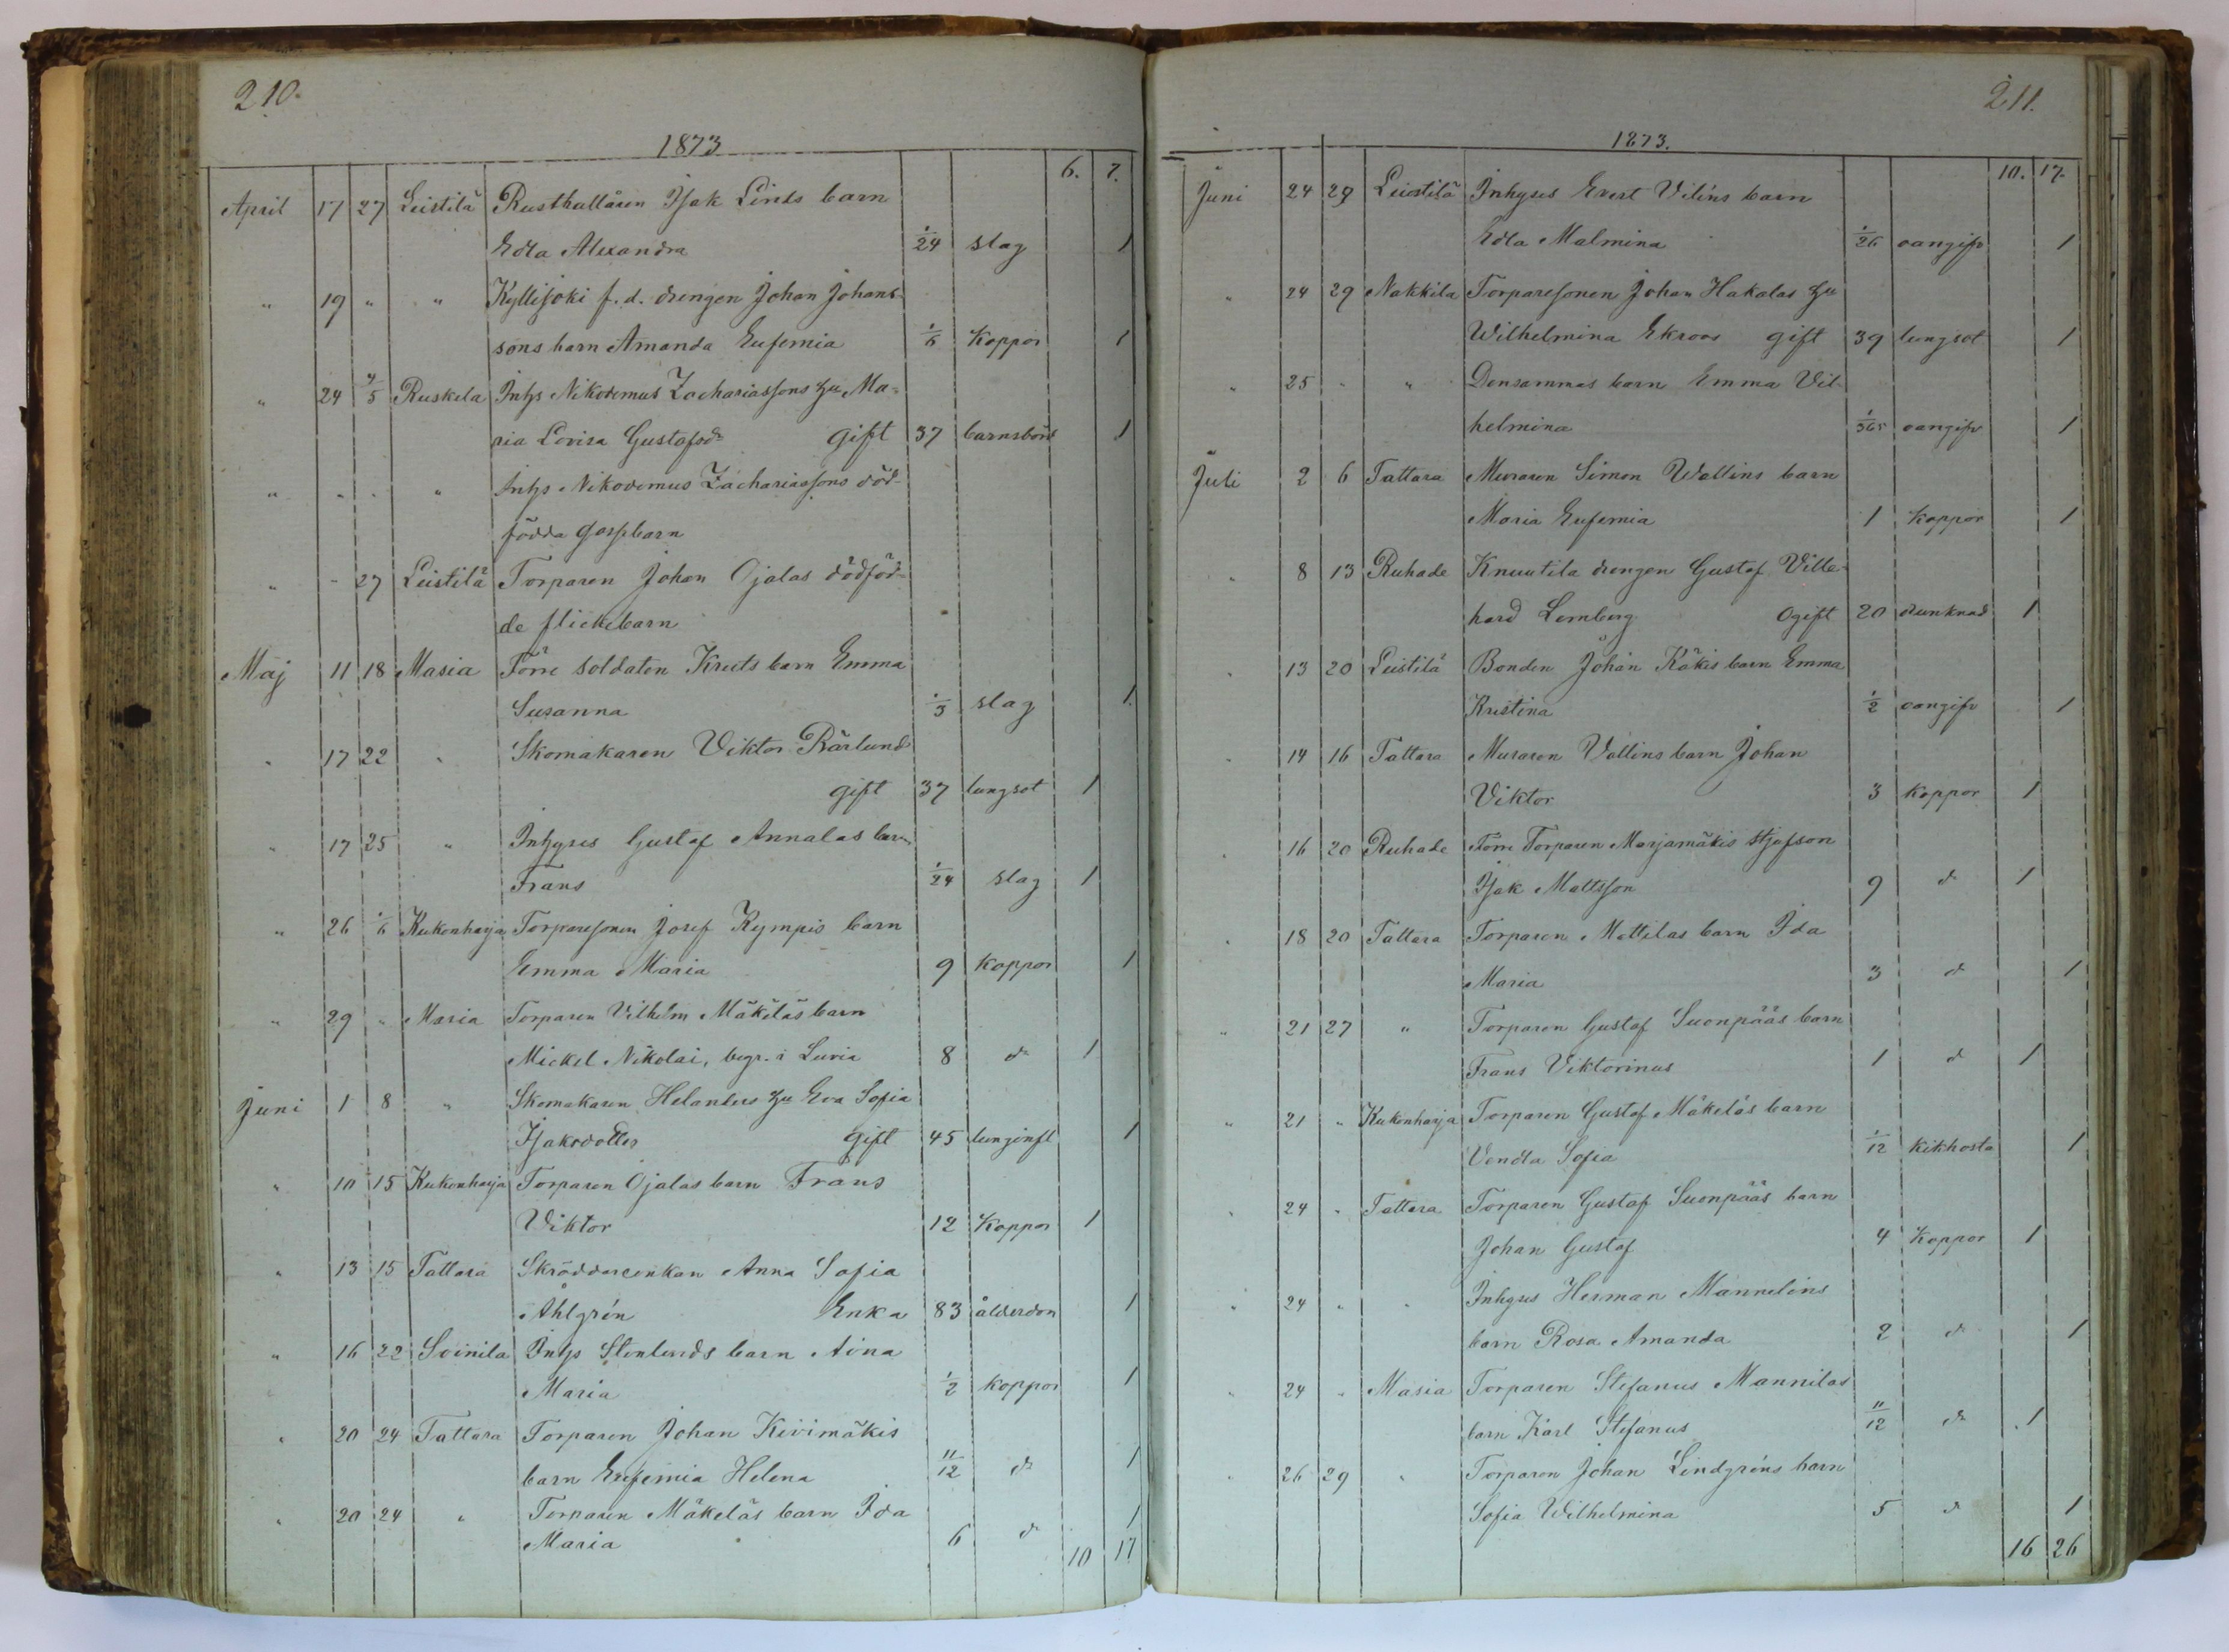 210.
1873
6. 7.
April 17 27 Leistilä Rusthållaren Isak Linds barn
Edla Alexandra 1/24 slag 1
" 19 " " Kyllijoki f. d. drengen Johan Johans-
sons barn Amanda Eufemia 1/6 Koppor 1
" 24 4/5 Ruskela Inhs Nikodemus Zachariassons hu Ma-
ria Lovisa Gustafsdr gift 37 barnsbörd 1
" " " " Inhs Nikodemus Zachariassons död-
födda gossebarn
" " 27 Leistilä Torparen Johan Ojalas dödföd-
de flickebarn
Maj 11 18 Masia Förre soldaten Kruts barn Emma
Susanna 1/3 slag 1
" 17 22 " Skomakaren Viktor Bärlund
gift 37 lungsot 1
" 17 25 " Inhyses Gustaf Annalas barn
Frans 1/24 slag 1
" 26 1/6 Kukonharja Torparesonen Josef Kympis barn
Emma Maria 9 Koppor 1
" 29 " Masia Torparen Vilhelm Mäkeläs barn
Mickel Nikolai, begr. i Luvia 8 d 1
Juni 1 8 " Skomakaren Helanders hu Eva Sofia
Isaksdotter gift 45 lunginfl 1
" 10 15 Kukonharja Torparen Ojalas barn Frans
Viktor 12 Koppor 1
" 13 15 Tattara Skräddareenkan Anna Sofia
Ahlgrén Enka 83 ålderdom 1
" 16 22 Soinila Inhs Stenlunds barn Aina
Maria 1/2 koppor 1
" 20 24 Tattara Torparen Johan Kivimäkis
barn Eufemia Helena 11/12 d 1
" 20 24 " Torparen Mäkeläs barn Ida
Maria 6 d 1
10 17
211.
1873.
10. 17.
Juni 24 29 Leistilä Inhyses Evert Viléns barn
Edla Malmina 1/26 oangifv 1
" 24 29 Nakkila Torparesonen Johan Hakalas hu
Wilhelmina Ekroos gift 39 lungsot 1
" 25 " " Densammas barn Emma Vil-
helmina 1/365 oangifv 1
Juli 2 6 Tattara Muraren Simon Wallins barn
Maria Eufemia 1 Koppor 1
" 8 13 Ruhade Knuutila drengen Gustaf Ville-
hard Lemberg Ogift 20 drunknad 1
" 13 20 Leistilä Bonden Johan Käkis barn Emma
Kristina 1/2 oangifv 1
" 14 16 Tattara Muraren Vallins barn Johan
Viktor 3 Koppor 1
" 16 20 Ruhade Förre Torparen Marjamäkis stjufson
Isak Mattsson 9 d 1
" 18 20 Tattara Torparen Mattilas barn Ida
Maria 3 d 1
" 21 27 " Torparen Gustaf Suonpääs barn
Frans Viktorinus 1 d 1
" 21 " Kukonharja Torparen Gustaf Mäkeläs barn
Vendla Sofia 1/12 kikhosta 1
" 24 " Tattara Torparen Gustaf Suonpääs barn
Johan Gustaf 4 Koppor 1
" 24 " " Inhyses Herman Mannelins
barn Rosa Amanda 2 d 1
" 24 " Masia Torparen Stefanus Mannilas
barn Karl Stefanus 11/12 d 1
" 26 29 " Torparen Johan Lindgréns barn
Sofia Wilhelmina 5 d 1
16 26